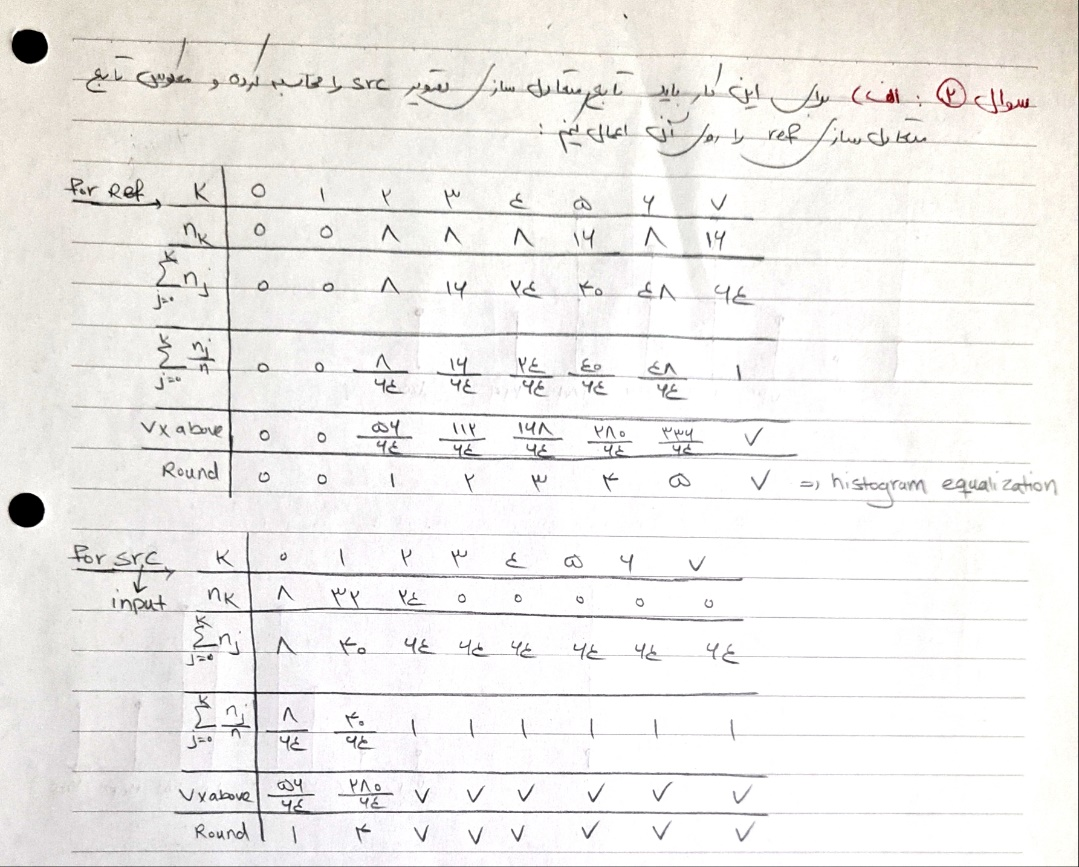 سوال ۲ : الف) برای این کار باید تابع متعادل ساز تصویر src را محاسبه کرده و معکوس تابع
متعادل ساز ref را روی آن اعمال کنیم :
For Ref → K ۰ ۱ ۲ ۳ ۴ ۵ ۶ ۷
nₖ ۰ ۰ ۸ ۸ ۸ ۱۶ ۸ ۱۶
∑ⱼ₌₀ᴷ nⱼ ۰ ۰ ۸ ۱۶ ۲۴ ۴۰ ۴۸ ۶۴
∑ⱼ₌₀ᴷ nⱼ/n ۰ ۰ ۸/۶۴ ۱۶/۶۴ ۲۴/۶۴ ۴۰/۶۴ ۴۸/۶۴ ۱
۷x above ۰ ۰ ۵۶/۶۴ ۱۱۲/۶۴ ۱۶۸/۶۴ ۲۸۰/۶۴ ۳۳۶/۶۴ ۷
Round ۰ ۰ ۱ ۲ ۳ ۴ ۵ ۷ => histogram equalization
For src → K ۰ ۱ ۲ ۳ ۴ ۵ ۶ ۷
input nₖ ۸ ۳۲ ۲۴ ۰ ۰ ۰ ۰ ۰
∑ⱼ₌₀ᴷ nⱼ ۸ ۴۰ ۶۴ ۶۴ ۶۴ ۶۴ ۶۴ ۶۴
∑ⱼ₌₀ᴷ nⱼ/n ۸/۶۴ ۴۰/۶۴ ۱ ۱ ۱ ۱ ۱ ۱
۷x above ۵۶/۶۴ ۲۸۰/۶۴ ۷ ۷ ۷ ۷ ۷ ۷
Round ۱ ۴ ۷ ۷ ۷ ۷ ۷ ۷